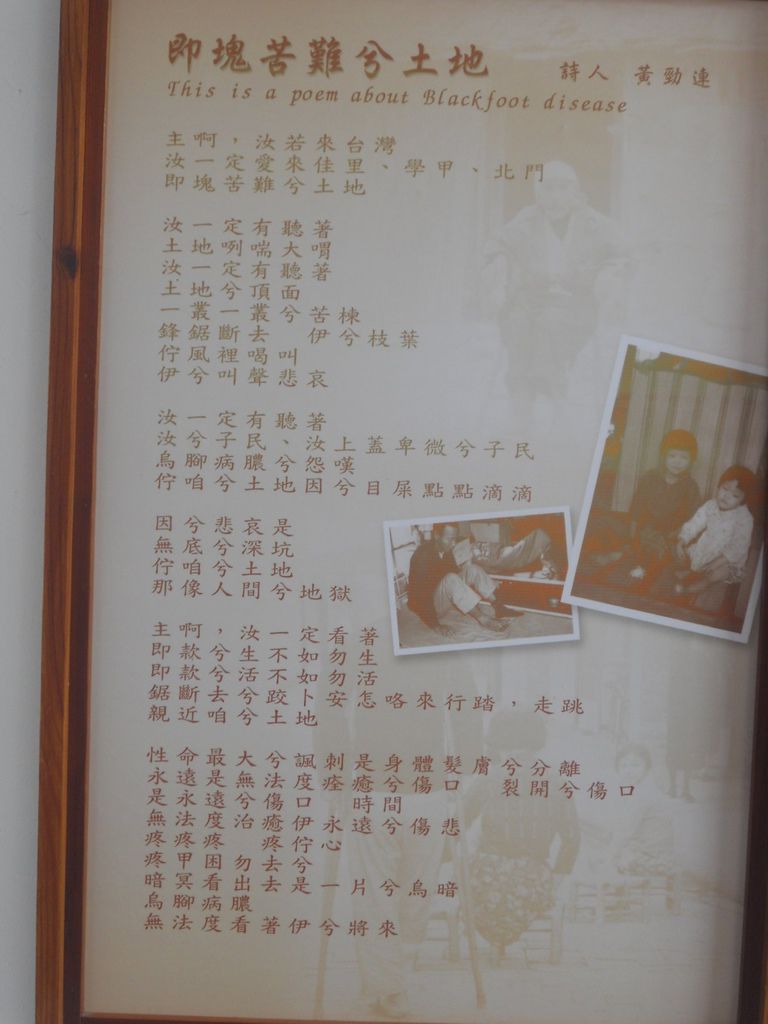 即塊苦難兮土地
詩人 黃勁連
This is a poem about Blackfoot disease
主啊，汝若來台灣
汝一定愛來佳里、學甲、北門
即塊苦難兮土地
汝一定有聽著
土地咧喘大喟
汝一定有聽著
土地兮頂面
一叢一叢兮苦楝
鋒鋸斷去 伊兮枝葉
佇風裡喝叫
伊兮叫聲悲哀
汝一定有聽著
汝兮子民、汝上蓋卑微兮子民
烏腳病膿兮怨嘆
佇咱兮土地因兮目屎點點滴滴
因兮悲哀是
無底兮深坑
佇咱兮土地
那像人間兮地獄
主啊，汝一定看著
即款兮生不如勿生
即款兮活不如勿活
鋸斷去兮跤卜安怎咯來行踏，走跳
親近咱兮土地
性命最大兮諷刺是身體髮膚兮分離
永遠是無法度痊癒兮傷口 裂開兮傷口
是永遠兮傷口 時間
無法度治癒伊永遠兮傷悲
疼疼疼 疼佇心
疼甲困勿去兮
暗冥看出去是一片兮烏暗
烏腳病膿
無法度看著伊兮將來